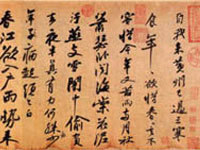 自我來黃州已過三寒
食年年欲惜春春去不
容惜今年又苦雨兩月秋
蕭瑟臥聞海棠花泥
汙燕支雪闇中偷負
去夜半真有力何殊
年子病起頭已白
春江欲入戶雨勢來